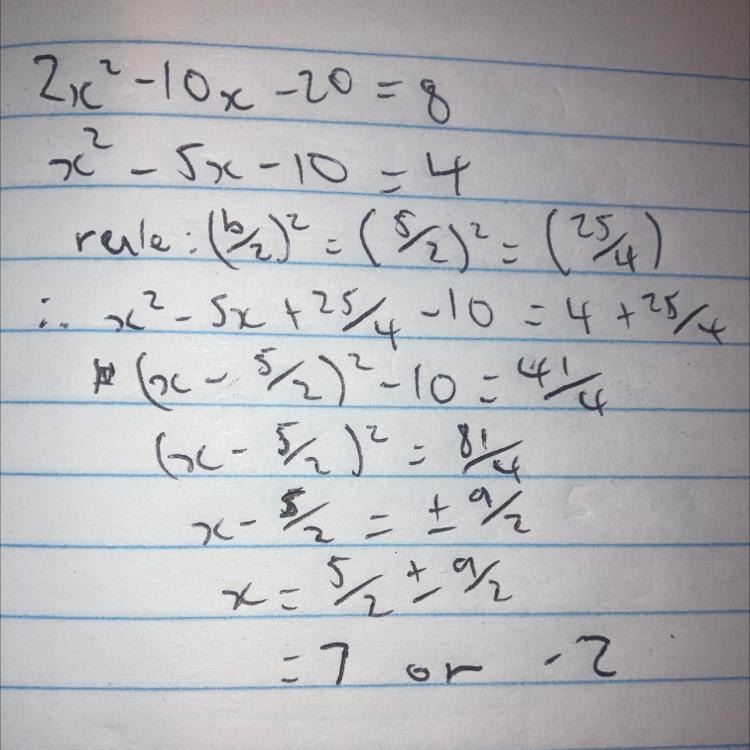 2x² -10x -20 = 8
x² - 5x - 10 = 4
rule: (b/2)² = (5/2)² = (25/4)
∴ x² - 5x + 25/4 - 10 = 4 + 25/4
(x - 5/2)² - 10 = 41/4
(x - 5/2)² = 81/4
x - 5/2 = ± 9/2
x = 5/2 ± 9/2
= 7 or -2